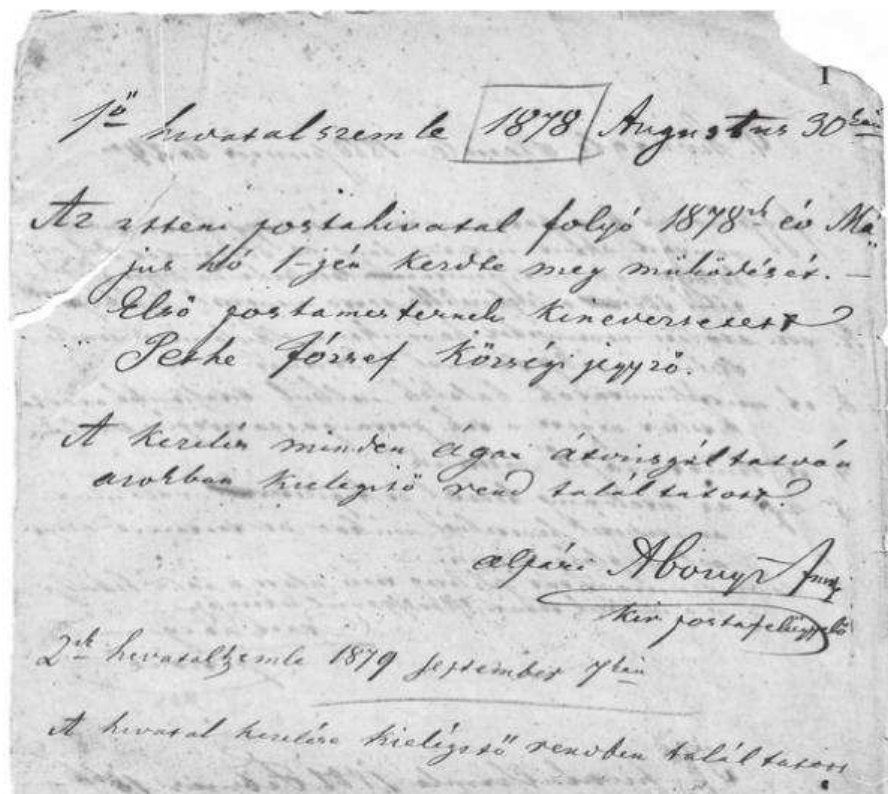 I
1ő hivatalszemle 1878 Augustus 30kán
Az itteni postahivatal folyó 1878ik év Má„
jus hó 1-jén kezdte meg működését. —
Első postamesternek kineveztetett
Pethe József Községi jegyző.
A kezelés minden ágai átvizsgáltatván
azokban kielégitő rend találtatott
alpári Abonyi
kir postafelügyelő
2ik hivatalszemle 1879 september 7kén
A hivatal kezelése kielégitő rendben találtatott